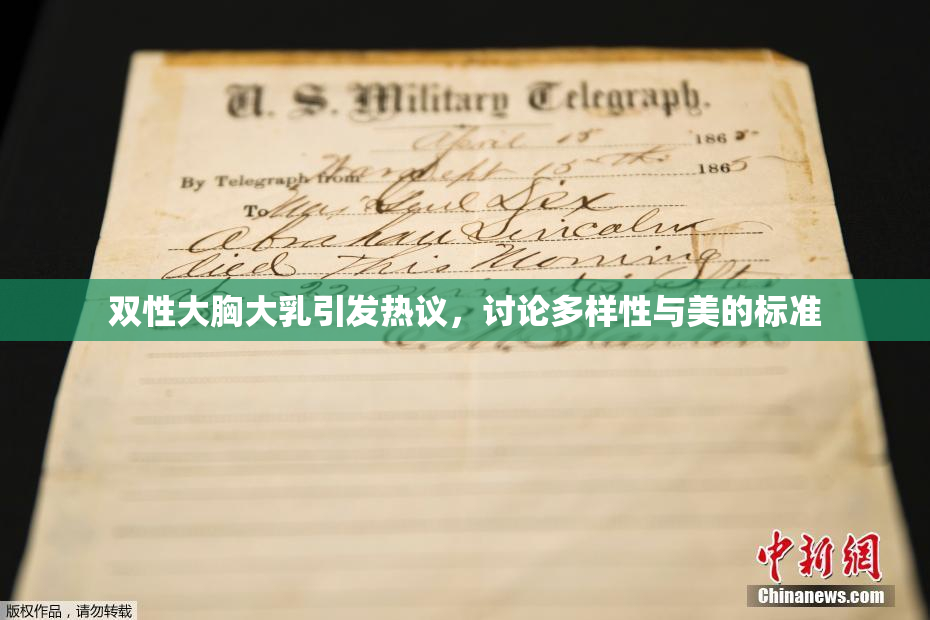 U. S. Military Telegraph.
April 15 1865
By Telegraph from War Dept 15th 1865
To Maj Genl Dix
Abraham Lincoln
died This Morning
22 minutes after
双性大胸大乳引发热议，讨论多样性与美的标准
中新网
Chinanews.com
版权作品，请勿转载